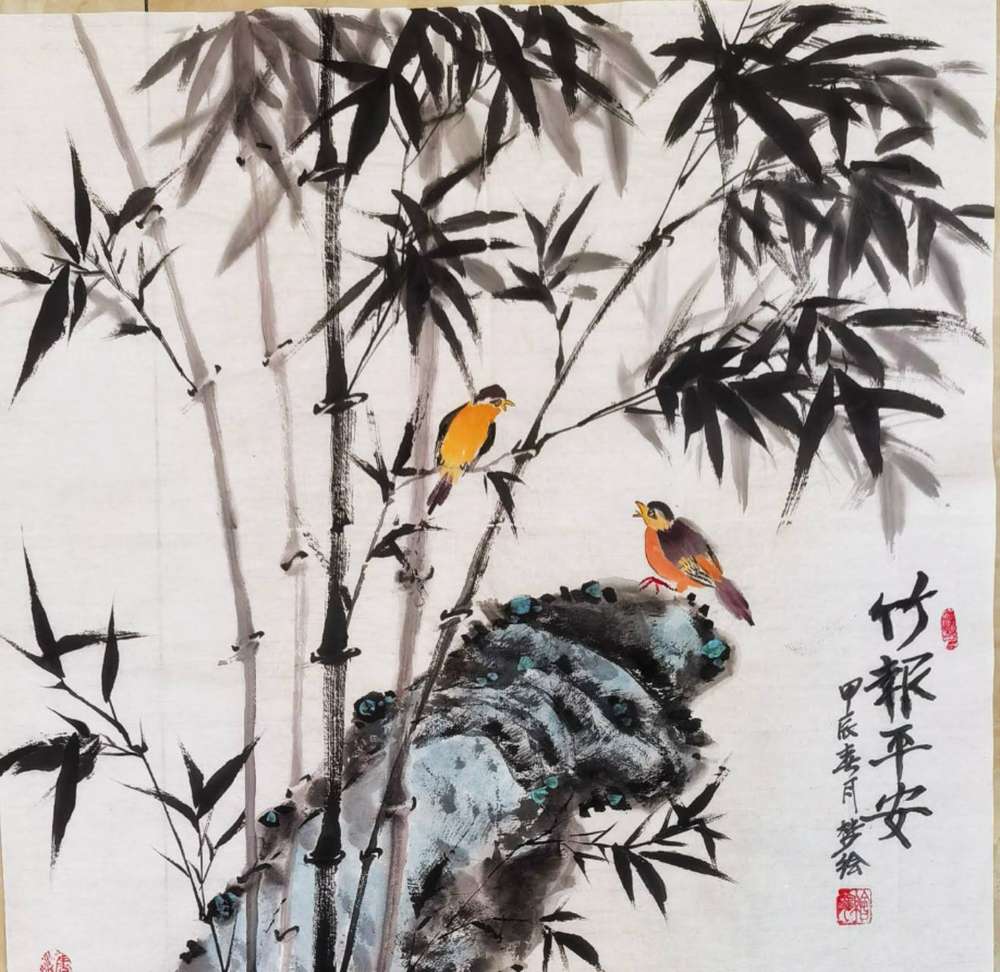 竹報平安
甲辰春月梦绘